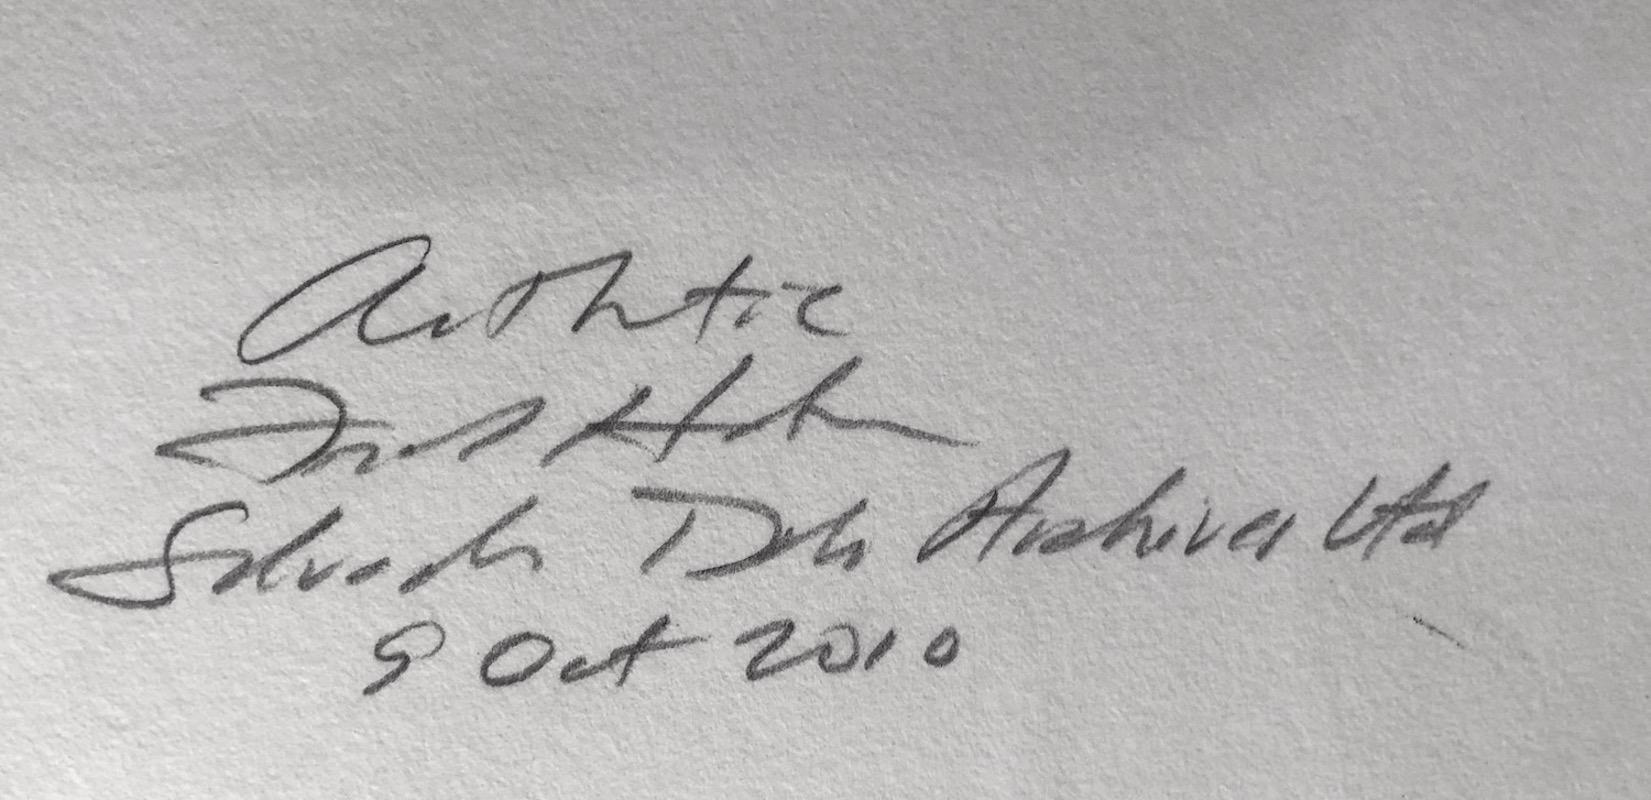 Authentic
Frank Hunter
Salvador Dali Archives Ltd
9 Oct 2010